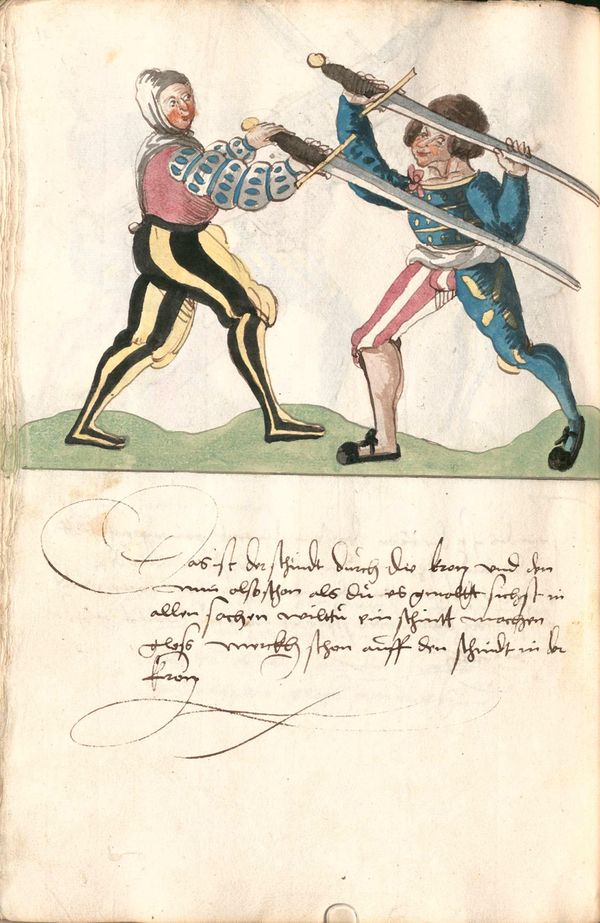 Das ist der schnidt durch die kron und den
nim also schon als du es gemaltt sichst in
allen sachen wiltu ein schnitt machen
gleiß merckh schon auff den schnidt in der
kron